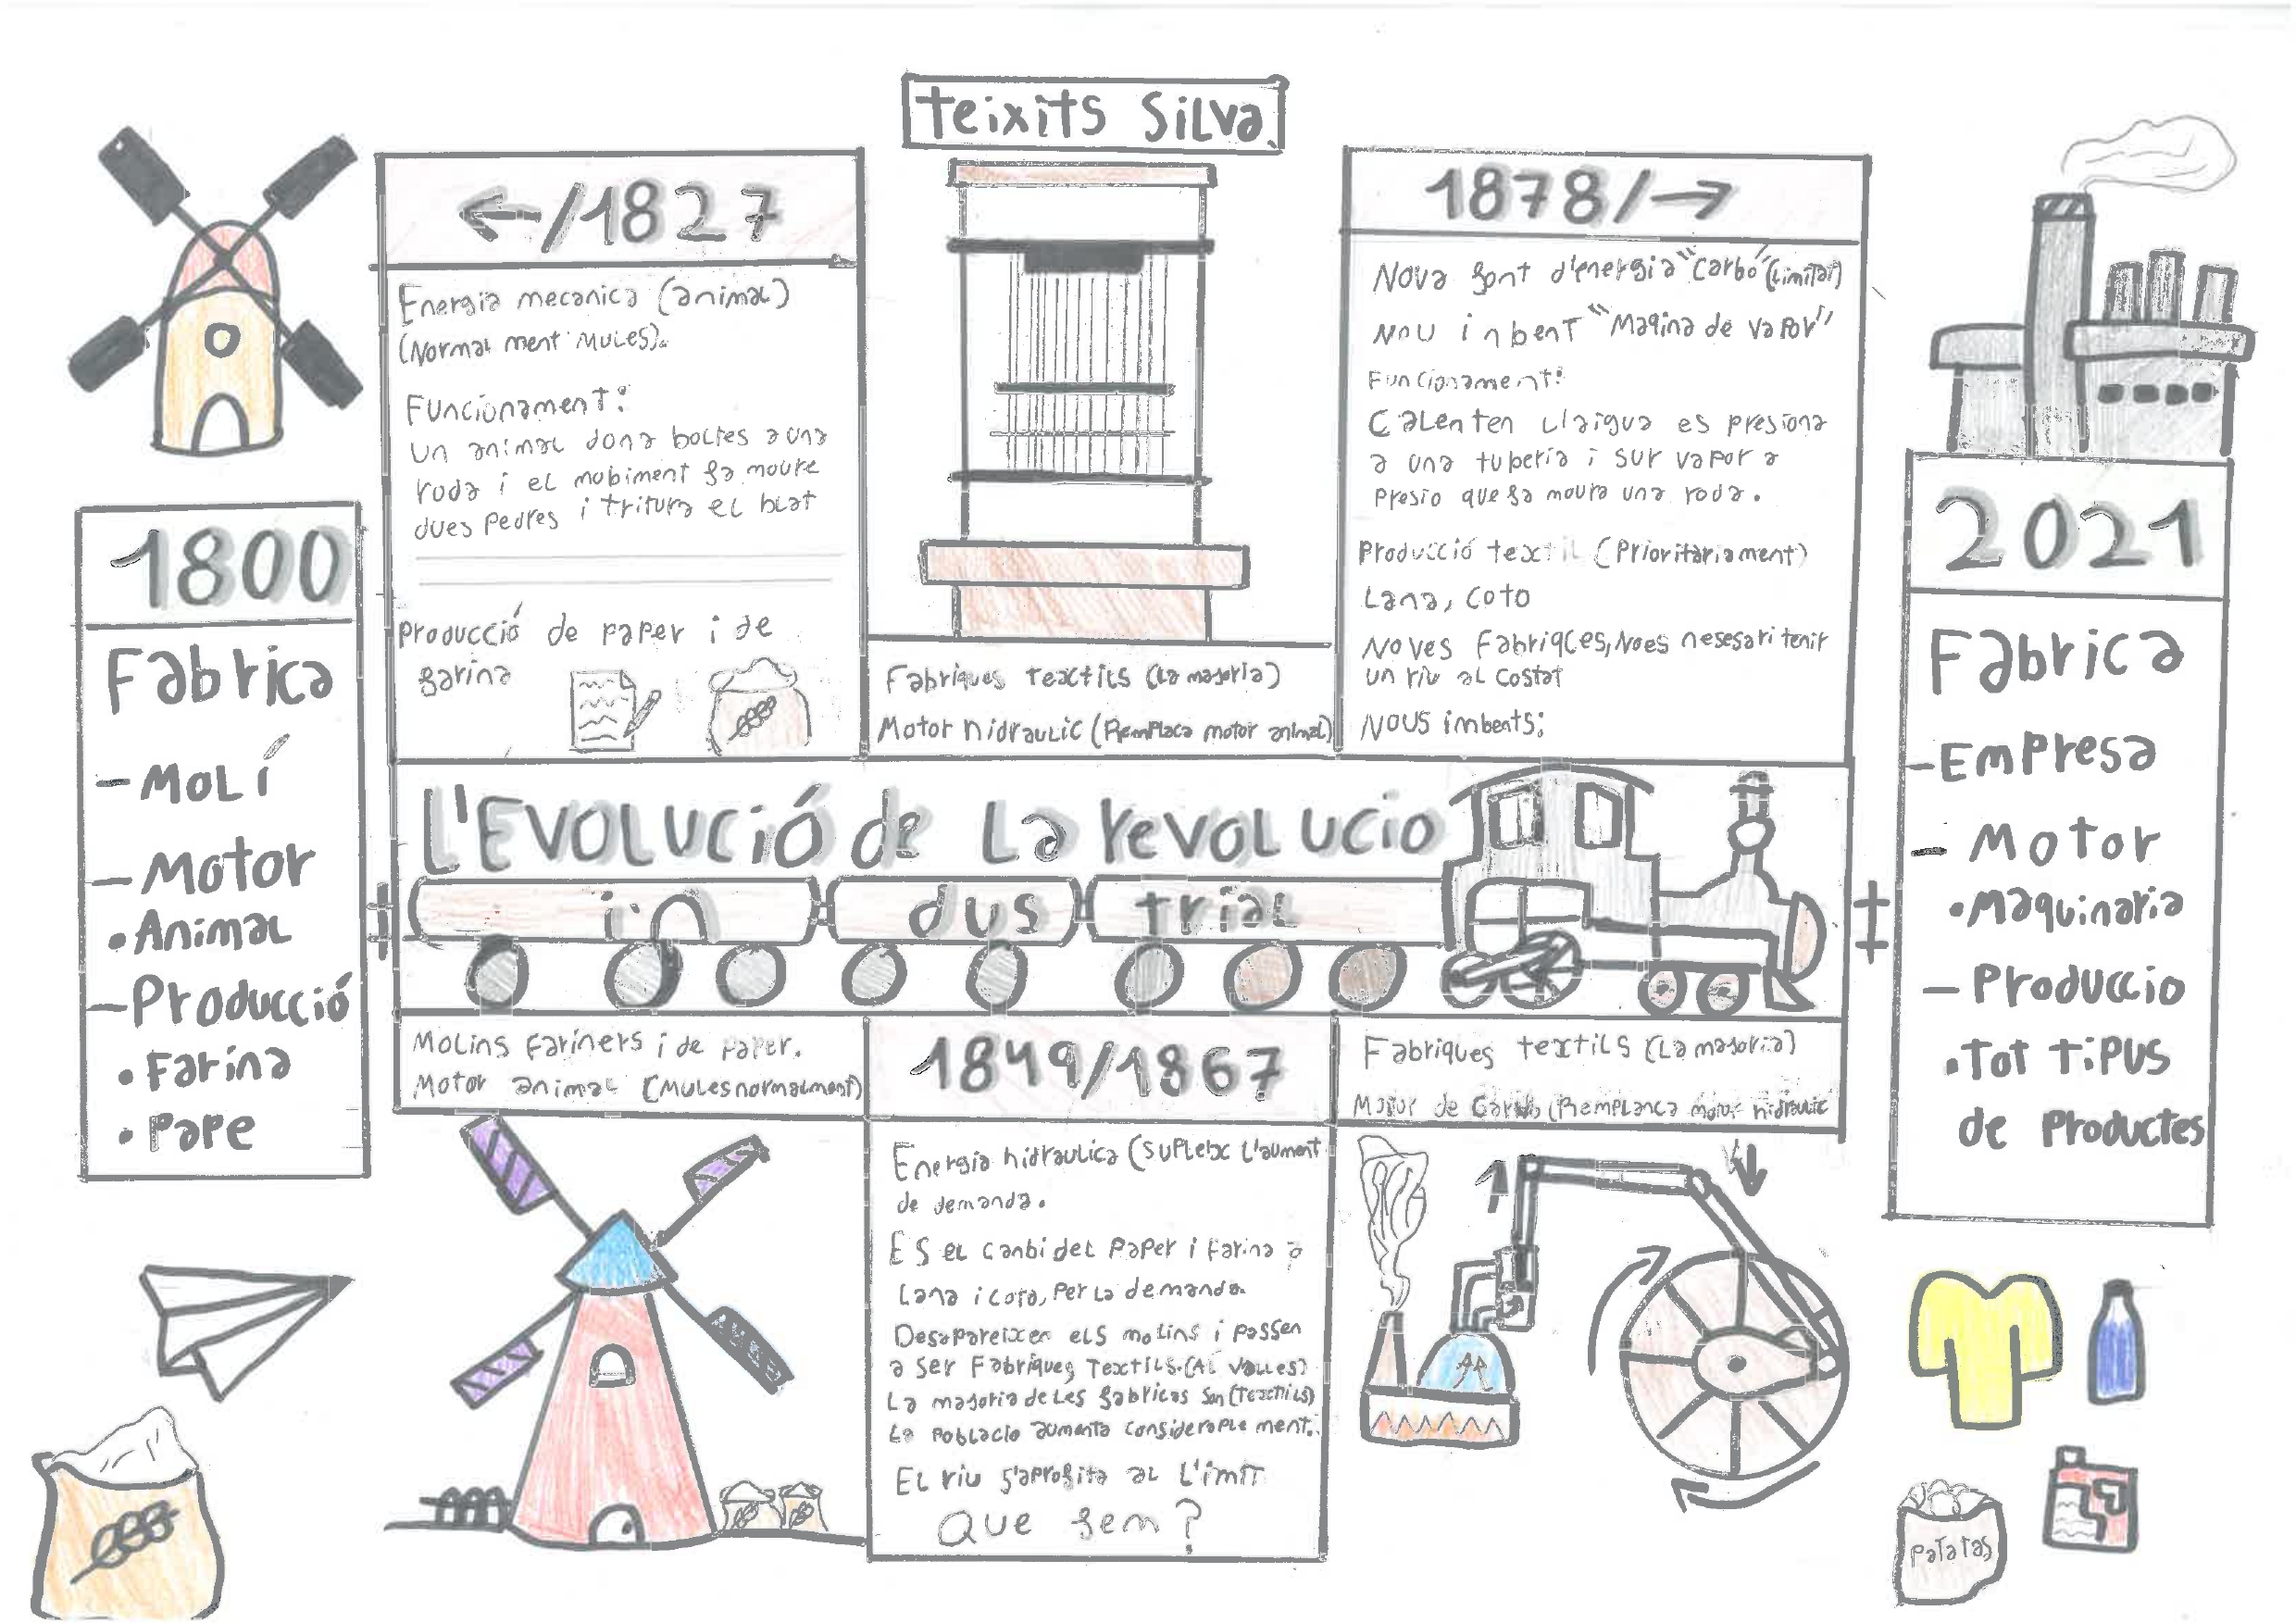 teixits Silva
←/1827
Energia mecanica (animal)
(Normal ment Mules).
Funcionament:
Un animal dona boltes a una
roda i el mobiment fa moure
dues pedres i tritura el blat
Producció de paper i de
farina
Fabriques texctils (La majoria)
Motor hidraulic (Remplaca motor animal)
1878/→
Nova font d'energia "carbo" (Limitat)
Nou inbent "Maqina de vapor"
Funcionament:
Calenten l'aigua es presiona
a una tuberia i sur vapor a
presio que fa moura una roda.
Producció textil (Prioritariament)
Lana, coto
Noves Fabriqces, No es nesesari tenir
un riu al costat
Nous imbents:
1800
Fabrica
- Molí
- Motor
• Animal
- Producció
• Farina
• Pape
L'Evolució de La revolucio
in dus trial
2021
Fabrica
- Empresa
- Motor
• Maquinaria
- Produccio
• Tot tipus
de Productes
Molins fariners i de paper.
Motor animal (Mules normalment)
1849/1867
Energia hidraulica (supleix l'aument
de demanda.
ES el canbi del paper i farina a
Lana i coto, Per la demanda.
Desapareixen els molins i passen
a ser Fabriques Textils. (Al Valles)
La majoria de les fabricas son (texctils)
La poblacio aumenta considerople ment.
El riu s'aprofita al l'imit
Que fem?
Fabriques textils (La majoria)
Motor de Carbo (Remplanca motor hidraulic
patatas